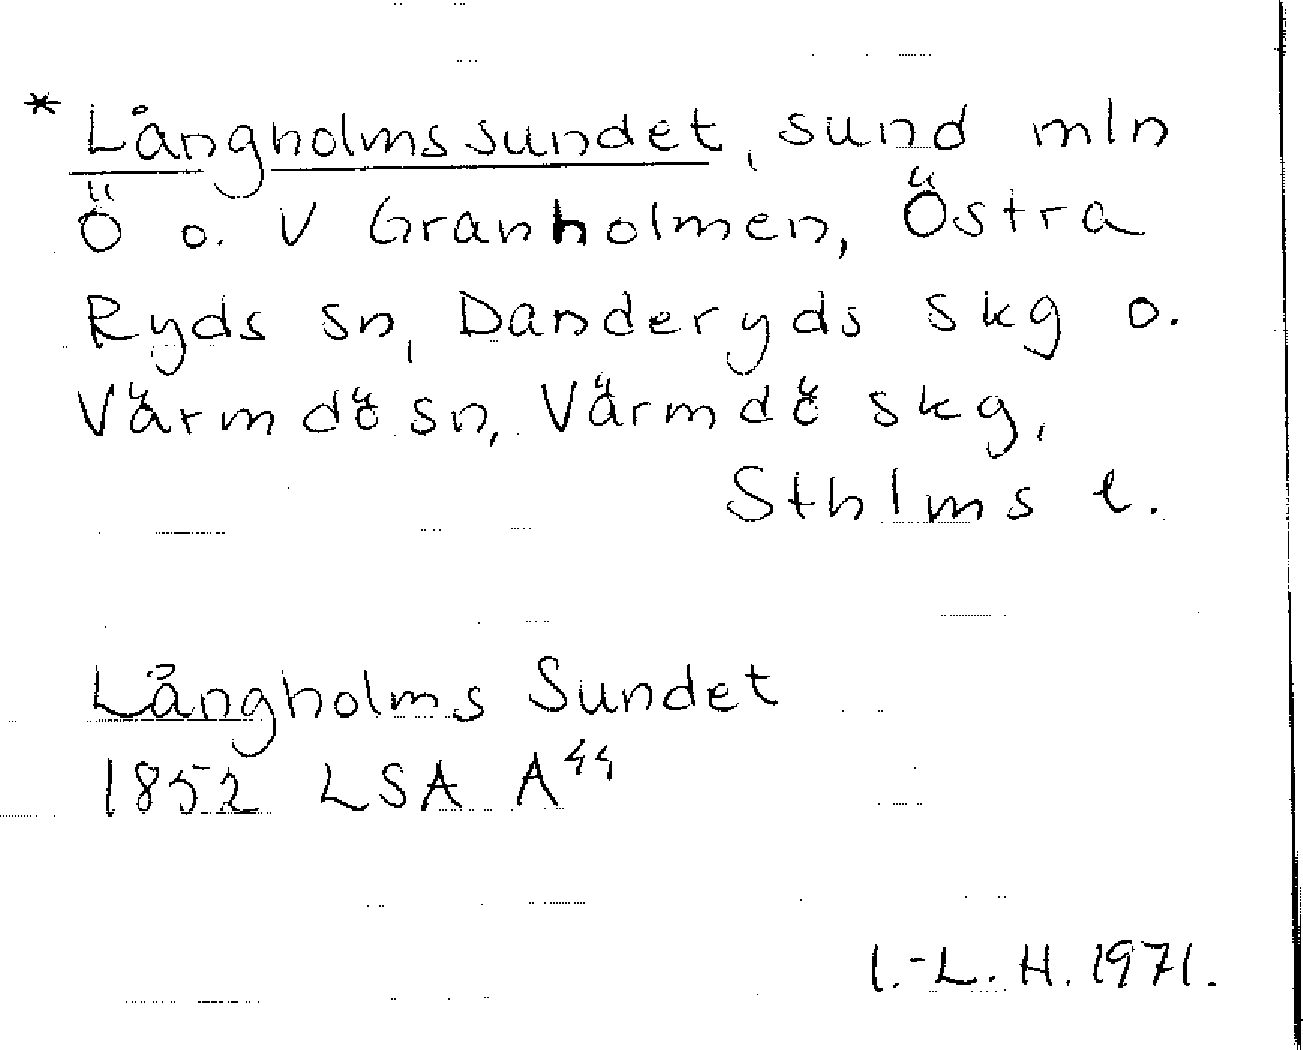 * Långholmssundet, sund mln
Ö o. V Granholmen, Östra
Ryds sn, Danderyds skg o.
Värmdö sn, Värmdö skg,
Sthlms l.
Långholms Sundet
1852 LSA A⁴⁴
I.-L. H. 1971.